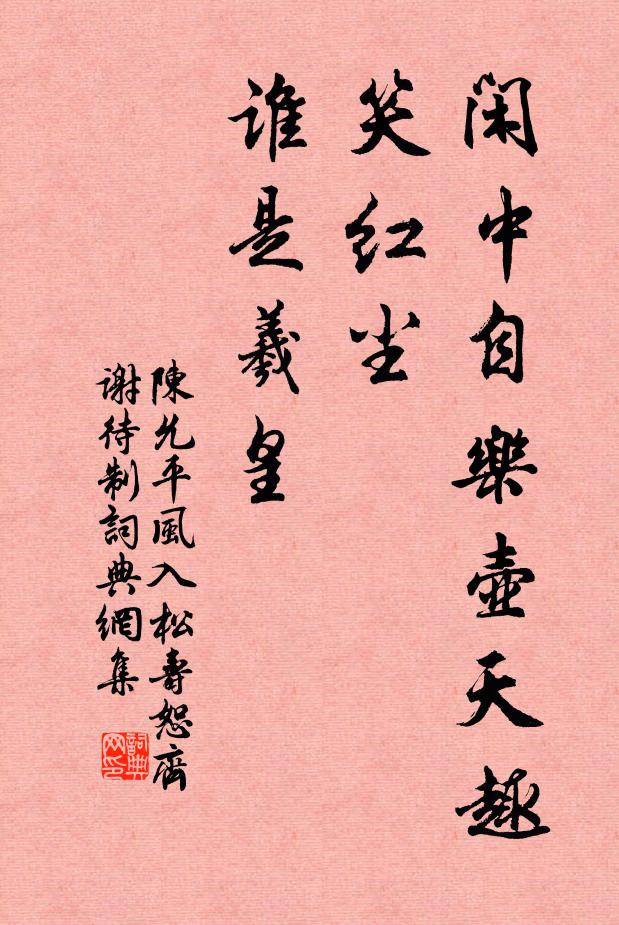 閑中自樂壺天趣
笑紅尘
誰是羲皇
陳允平風入松壽恕齋
謝待制詞典網集
詞典
网印